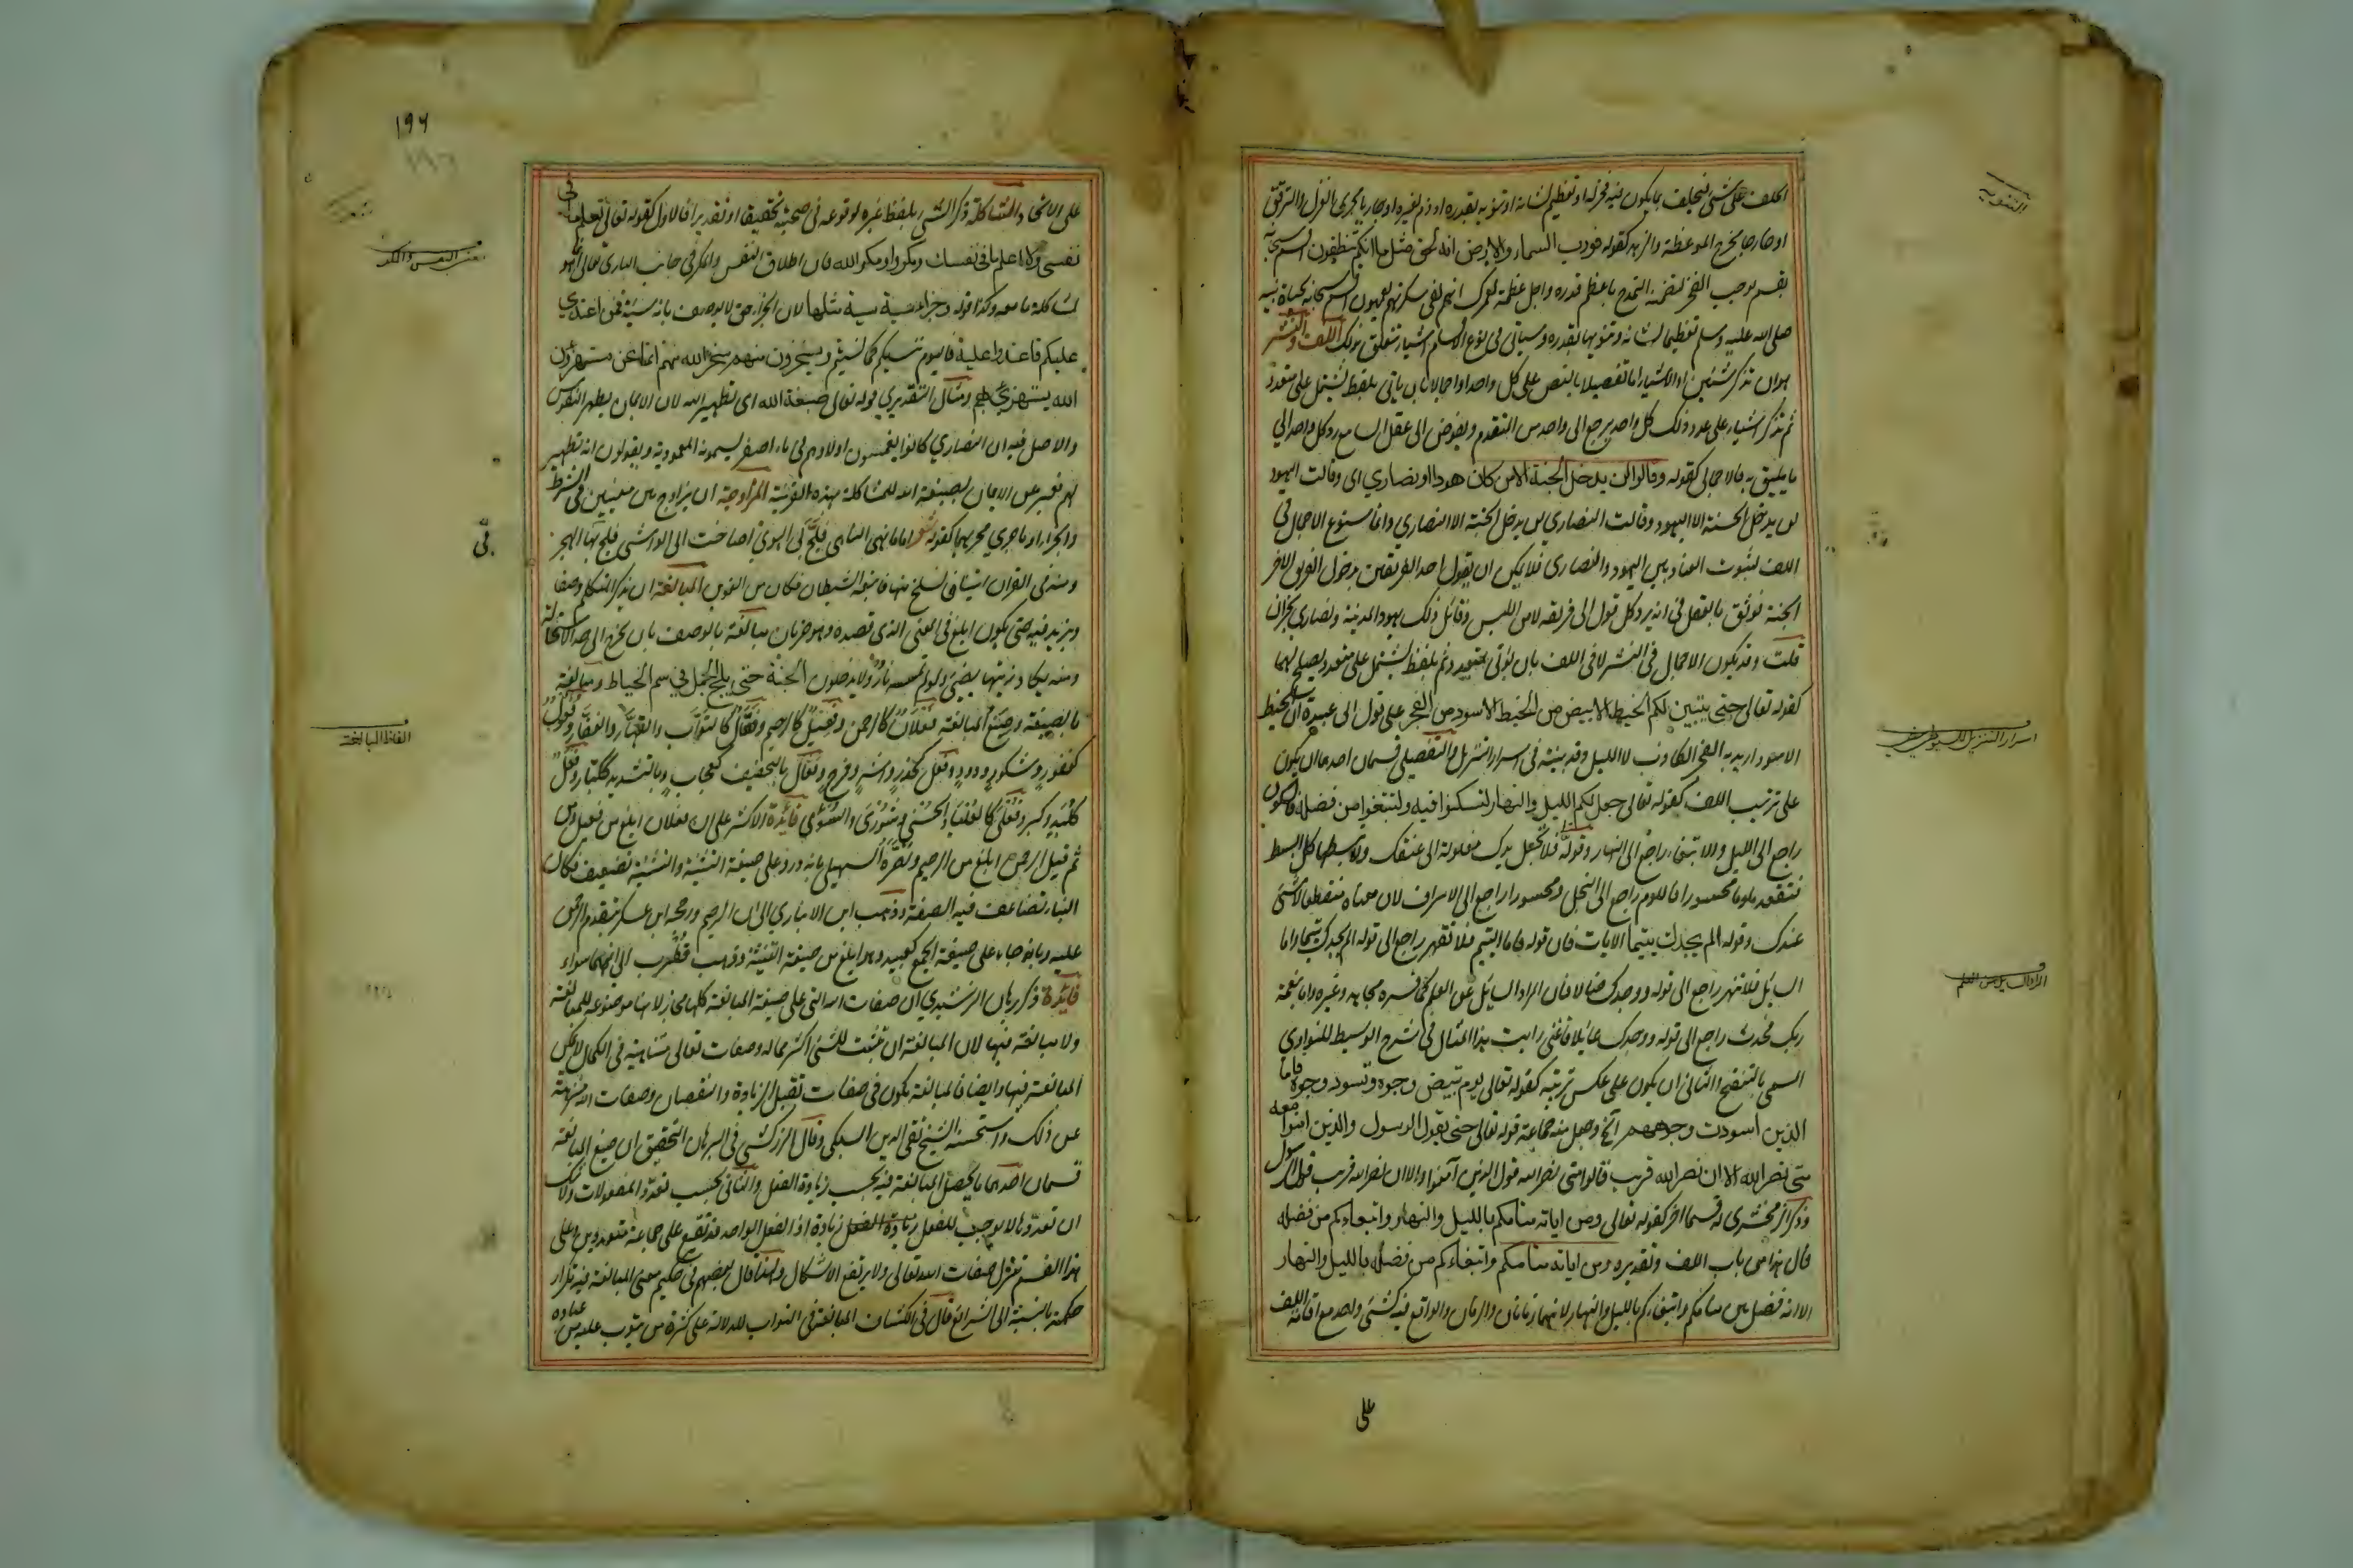 الحلف على شئ فيحلف بما يكون فيه فخر له او تعظيم لشانه او تنويه بقدره او ذم لغيره او جاريا مجرى الغزل والترقق
او خارجا مخرج الموعظة والزهد كقوله فورب السماء والارض انه لحق مثل ما انكم تنطقون اقسم سبحانه
بقسم يوجب الفخر لتضمنه التمدح باعظم قدرة واجل عظمة لعمرك انهم لفى سكرتهم يعمهون اقسم سبحانه بحياة نبيه
صلى الله عليه وسلم تعظيما لشانه وتنويها بقدره وسياتى فى نوع الاقسام اشياء تتعلق بذلك اللف والنشر
هو ان تذكر شيئين او الاشياء اما تفصيلا بالنص على كل واحد او اجمالا بان ياتى بلفظ يشتمل على متعدد
ثم تذكر اشياء على عدد ذلك كل واحد يرجع الى واحد من المتقدم ويفوض الى عقل السامع رد كل واحد الى
ما يليق به فالاجمالى كقوله وقالوا لن يدخل الجنة الا من كان هودا او نصارى اى وقالت اليهود
لن يدخل الجنة الا اليهود وقالت النصارى لن يدخل الجنة الا النصارى وانما سوغ الاجمال فى
اللف ثبوت العناد بين اليهود والنصارى فلا يمكن ان يقول احد الفريقين بدخول الفريق الاخر
الجنة فوثق بالعقل فى انه يرد كل قول الى فريقه لامن اللبس وقائل ذلك يهود المدينة ونصارى نجران
قلت وقد يكون الاجمال فى النشر لا فى اللف بان يؤتى بمتعدد ثم بلفظ يشتمل على متعدد يصلح لهما
كقوله تعالى حتى يتبين لكم الخيط الابيض من الخيط الاسود من الفجر على قول ابى عبيدة ان الخيط
الاسود اريد به الفجر الكاذب لا الليل وقد بينته فى اسرار التنزيل والتفصيلى قسمان احدهما ان يكون
على ترتيب اللف كقوله تعالى جعل لكم الليل والنهار لتسكنوا فيه ولتبتغوا من فضله فالسكون
راجع الى الليل والابتغاء راجع الى النهار وقوله ولا تجعل يدك مغلولة الى عنقك ولا تبسطها كل البسط
فتقعد ملوما محسورا فاللوم راجع الى البخل ومحسورا راجع الى الاسراف لان معناه منقطعا لا شئ
عندك وقوله الم يجدك يتيما الايات فان قوله فاما اليتيم فلا تقهر راجع الى قوله الم يجدك يتيما واما
السائل فلا تنهر راجع الى قوله ووجدك ضالا فان المراد السائل عن العلم كما فسره مجاهد وغيره واما بنعمة
ربك فحدث راجع الى قوله ووجدك عائلا فاغنى رايت هذا المثال فى شرح الوسيط للنواوى
المسمى بالتنقيح والثانى ان يكون على عكس ترتيبه كقوله تعالى يوم تبيض وجوه وتسود وجوه فاما
الذين اسودت وجوههم الخ وجعل منه جماعة قوله تعالى حتى يقول الرسول والذين امنوا معه
متى نصر الله الا ان نصر الله قريب قالوا متى نصر الله قول الذين آمنوا والا ان نصر الله قريب قول الرسول
وذكر الزمخشرى له قسما اخر كقوله تعالى ومن اياته منامكم بالليل والنهار وابتغاءكم من فضله
قال هذا من باب اللف وتقديره ومن اياته منامكم وابتغاءكم من فضله بالليل والنهار
الا انه فصل بين منامكم وابتغاءكم بالليل والنهار لانهما زمانان والزمان والواقع فيه كشئ واحد مع اقامة اللف
على
التنويه
اسرار التنزيل للسيوطى
المراد السائل من العلم
١٩٦
على الاتحاد والمشاكلة ذكر الشئ بلفظ غيره لوقوعه فى صحبته تحقيقا او تقديرا فالاول كقوله تعالى تعلم ما فى
نفسى ولا اعلم ما فى نفسك ومكروا ومكر الله فان اطلاق النفس والمكر فى جانب البارى تعالى انما هو
لمشاكلة ما معه وكذا قوله وجزاء سيئة سيئة مثلها لان الجزاء حق لا يوصف بانه سيئة فمن اعتدى
عليكم فاعتدوا عليه فاليوم ننسيكم كما نسيتم ويسخرون منهم سخر الله منهم انما نحن مستهزؤن
الله يستهزئ بهم ومثال التقديرى قوله تعالى صبغة الله اى تطهير الله لان الايمان يطهر النفوس
والاصل فيه ان النصارى كانوا يغمسون اولادهم فى ماء اصفر يسمونه المعمودية ويقولون انه تطهير
لهم فعبر عن الايمان بصبغة الله للمشاكلة بهذه القرينة المزاوجة ان يزاوج بين معنيين فى الشرط
والجزاء او ما جرى مجراهما كقوله شعر اذا ما نهى الناهى فلج بى الهوى اصاخت الى الواشى فلج بها الهجر
ومنه فى القران اتيناه اياتنا فانسلخ منها فاتبعه الشيطان فكان من الغاوين المبالغة ان يذكر المتكلم وصفا
ويزيد فيه حتى يكون ابلغ فى المعنى الذى قصده وهو ضربان مبالغة بالوصف بان يخرج الى حد الاستحالة
ومنه يكاد زيتها يضئ ولو لم تمسسه نار ولا يدخلون الجنة حتى يلج الجمل فى سم الخياط ومبالغة
بالصيغة وصيغ المبالغة فعلان كالرحمن وفعيل كالرحيم وفعال كالتواب والقهار والغفار وفعول
كغفور وشكور وودود وفعل كحذر واشر وفرح وفعال بالتخفيف كعجاب وبالتشديد ككبار وفعل
كلبد وكبر وفعلى كالعليا والحسنى وشورى والسوءى فائدة الاكثر على ان فعلان ابلغ من فعيل ومن
ثم قيل الرحمن ابلغ من الرحيم ونصره السهيلى بانه ورد على صيغة التثنية والتثنية تضعيف فكان
البناء تضاعفت فيه الصفة وذهب ابن الانبارى الى ان الرحيم ورجحه ابن عسكر بتقديم الرحمن
عليه وبانه جاء على صيغة الجمع كعبيد وهو ابلغ من صيغة التثنية وذهب قطرب الى انهما سواء
فائدة ذكر برهان الرشيدى ان صفات الله التى على صيغة المبالغة كلها مجاز لانها موضوعة للمبالغة
ولا مبالغة فيها لان المبالغة ان تثبت للشئ اكثر مما له وصفات تعالى متناهية فى الكمال لا يمكن
المبالغة فيها وايضا فالمبالغة تكون فى صفات تقبل الزيادة والنقصان وصفات الله منزهة
عن ذلك واستحسنه الشيخ تقى الدين السبكى وقال الزركشى فى البرهان التحقيق ان صيغ المبالغة
قسمان احدهما ما يحصل المبالغة فيه بحسب زيادة الفعل والثانى بحسب تعدد المفعولات ولا شك
ان تعددها لا يوجب للفعل زيادة اذ الفعل الواحد قد يقع على جماعة متعددين وعلى
هذا القسم تنزل صفات الله تعالى ولا يرتفع الاشكال ولهذا قال بعضهم فى حكيم معنى المبالغة فيه تكرار
حكمه بالنسبة الى الشرائع قال فى الكشاف المبالغة فى التواب للدلالة على كثرة من يتوب عليه من عباده
فى
الفاظ المبالغة